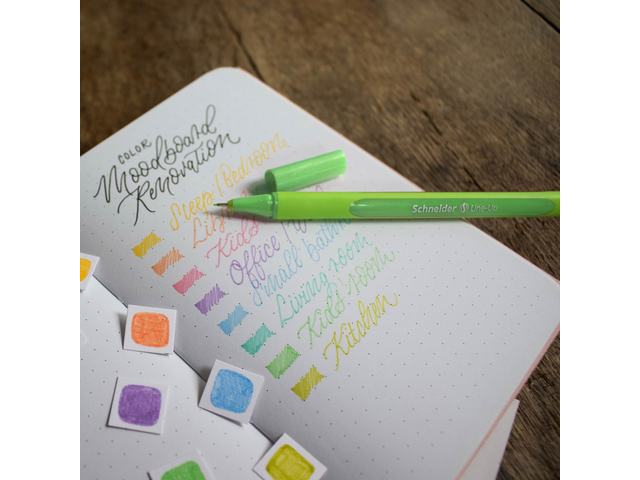 COLOR
Moodboard
Renovation
Sleep/Bedroom
Kids
Office
Small bathr
Living room
Kids' room
Kitchen
Schneider Line-Up